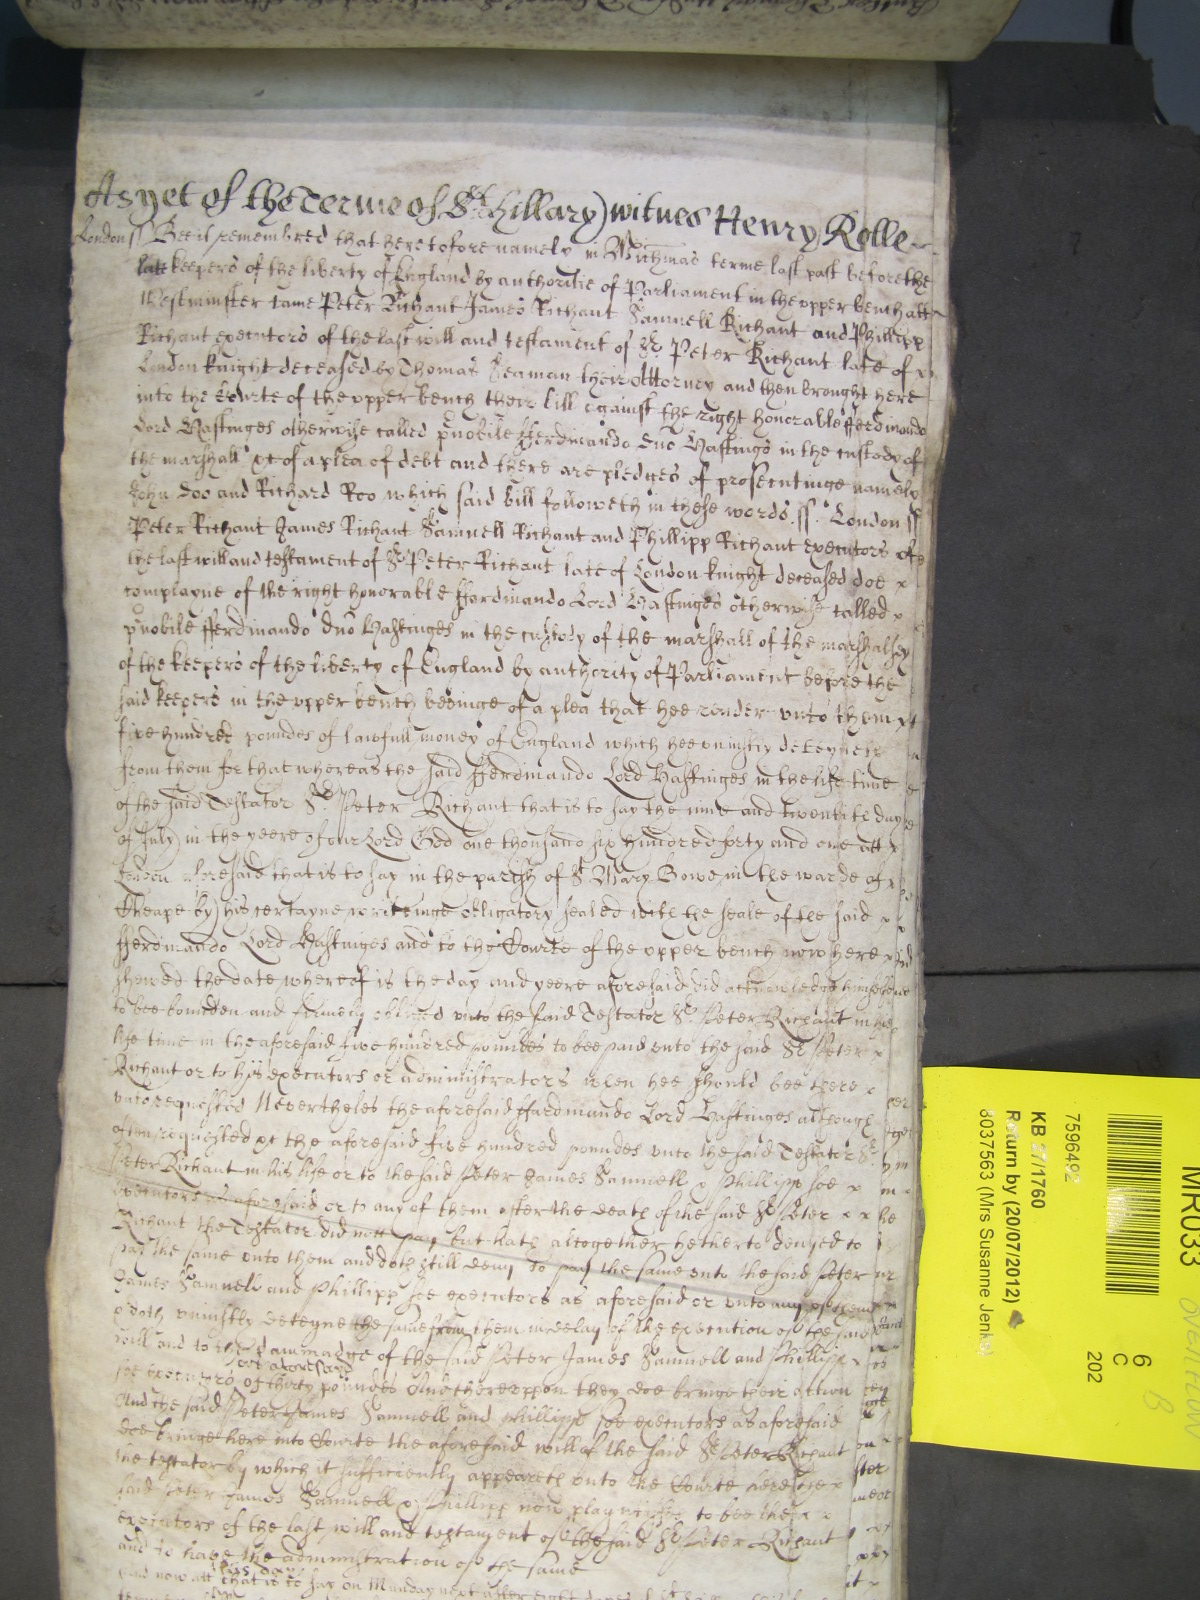 As yet of the Terme of St hillary witnes Henry Rolle
London ss Bee it remembred that heretofore namely in Michmas terme last past before the
late keepers of the liberty of England by authoritie of Parliament in the upper bench att
Westminster came Peter Richant James Richant Samuell Richant and Phillipp
Richant executors of the last will and testament of Sr Peter Richant late of x
London knight deceased by Thomas Seaman their Attorney and then brought here
into the Courte of the upper bench their bill against the right honorable fferdinando
Lord Hastinges otherwise called pnobile fferdinando duo Hastings in the custody of
the marshall &c of a plea of debt and there are pledges of prosecutinge namely
John Doo and Richard Roo which said bill followeth in these words ss. London ss
Peter Richant James Richant Samuell Richant and Phillipp Richant executors of
the last will and testament of Sr Peter Richant late of London knight deceased doe x
complayne of the right honorable fferdinando Lord Hastinges otherwise called x
pnobile fferdinando duo Hastinges in the custody of the marshall of the marshalsey
of the keepers of the liberty of England by authority of Parliament before the
said keepers in the upper bench beeinge of a plea that hee render unto them x
five hundred poundes of lawfull money of England which hee uniustly deteyneth
from them for that whereas the said fferdinando Lord Hastinges in the life time
of the said Testator Sr Peter Richant that is to say the nine and twentith day
of July in the yeere of our Lord God one thousand six hundored forty and one att x
London aforesaid that is to say in the parish of St Mary Bowe in the warde of x
Cheape by his certayne writeinge obligatory sealed with the seale of the said x
fferdinando Lord Hastinges and to the Courte of the upper bench now here x
shewed the date whereof is the day and yeere aforesaid did acknowledge himselfe
to bee bounden and firmely obliged unto the said Testator Sr Peter Richant in his
life time in the aforesaid five hundred poundes to bee paid unto the said Sr Peter x
Richant or to his executors or administrators when hee should bee there x
unto requested Neverthelesse the aforesaid fferdinando Lord Hastinges although
often requested &c the aforesaid five hundred poundes unto the said Testator Sr
Peter Richant in his life or to the said Peter James Samuell & Phillipp soe x
executors as aforesaid or to any of them after the death of the said Sr Peter x x
Richant the Testator did nott pay but hath altogether hetherto denyed to
pay the same unto them and doth still deny to pay the same unto the said Peter
James Samuell and Phillipp soe executors as aforesaid or unto any of them
& doth uniustly deteyne the same from them in delay of the execution of the said
will and to the dammadge of the said Peter James Samuell and Phillipp x
as aforesaid
soe executors of thirty poundes And thereuppon they doe bringe their action
And the said Peter James Samuell and Phillipp soe executors as aforesaid
doe bringe here into Courte the aforesaid will of the said Sr Peter Richant
the testator by which it sufficiently appeareth unto the Courte here the x
said Peter James Samuell & Phillipp now playntiffes to bee the x
executors of the last will and testament of the said Sr Peter Richant
and to have the administration of the same
this day
And now att that is to say on Munday next after eight dayes of
MR033
6
C
202
7596492
KB 27/1760
Return by (20/07/2012)
8037563 (Mrs Susanne Jenks)